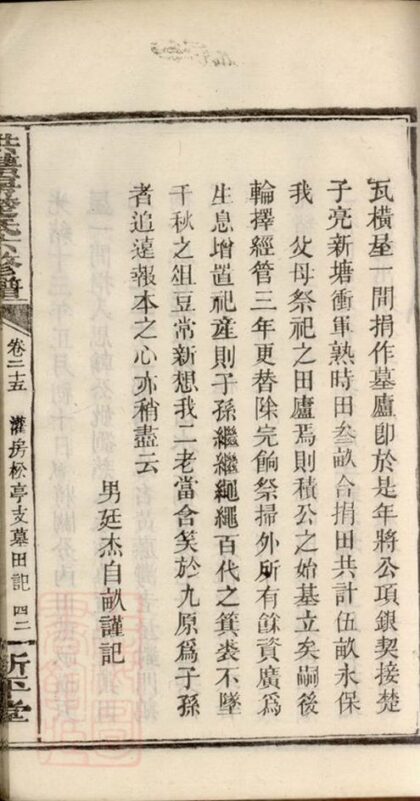 瓦橫屋一間捐作墓廬卽於是年將公項銀契接楚
子亮新塘衝軍熟時田叁畝合捐田共計伍畝永保
我 父母祭祀之田廬焉則積公之始基立矣嗣後
輪擇經管三年更替除完餉祭掃外所有餘資廣爲
生息增置祀產則子孫繼繼繩繩百代之箕裘不墜
千秋之俎豆常新想我二老當含笑於九原爲子孫
者追遠報本之心亦稍盡云
男廷杰自畝謹記
卷二十五 灌房松亭支墓田記 四二